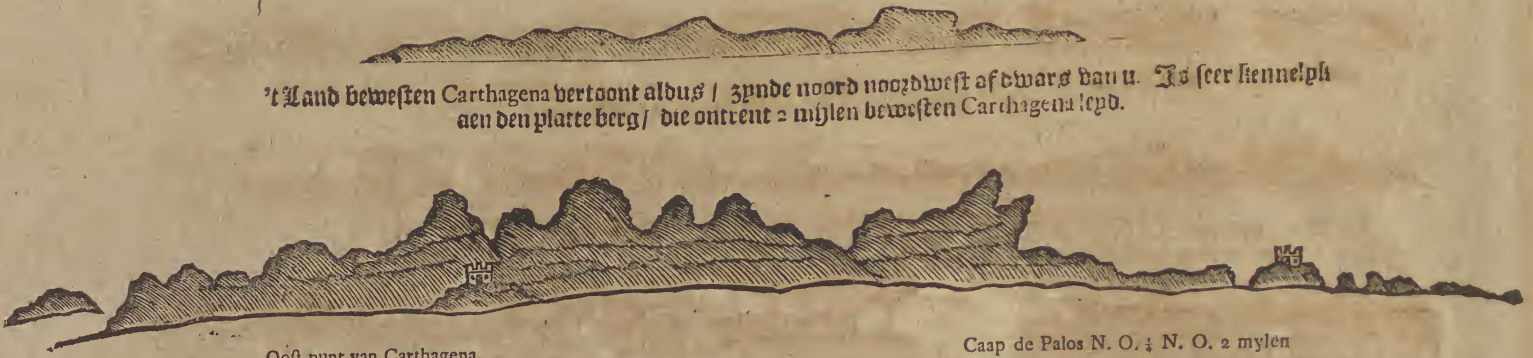 't Land bewesten Carthagena vertoont aldus / zynde noord noordwest af dwars van u. Is seer kennelyk
aen den platte berg / die ontrent 2 mijlen bewesten Carthagena leyd.
Oost punt van Carthagena
Caap de Palos N. O. ¼ N. O. 2 mylen